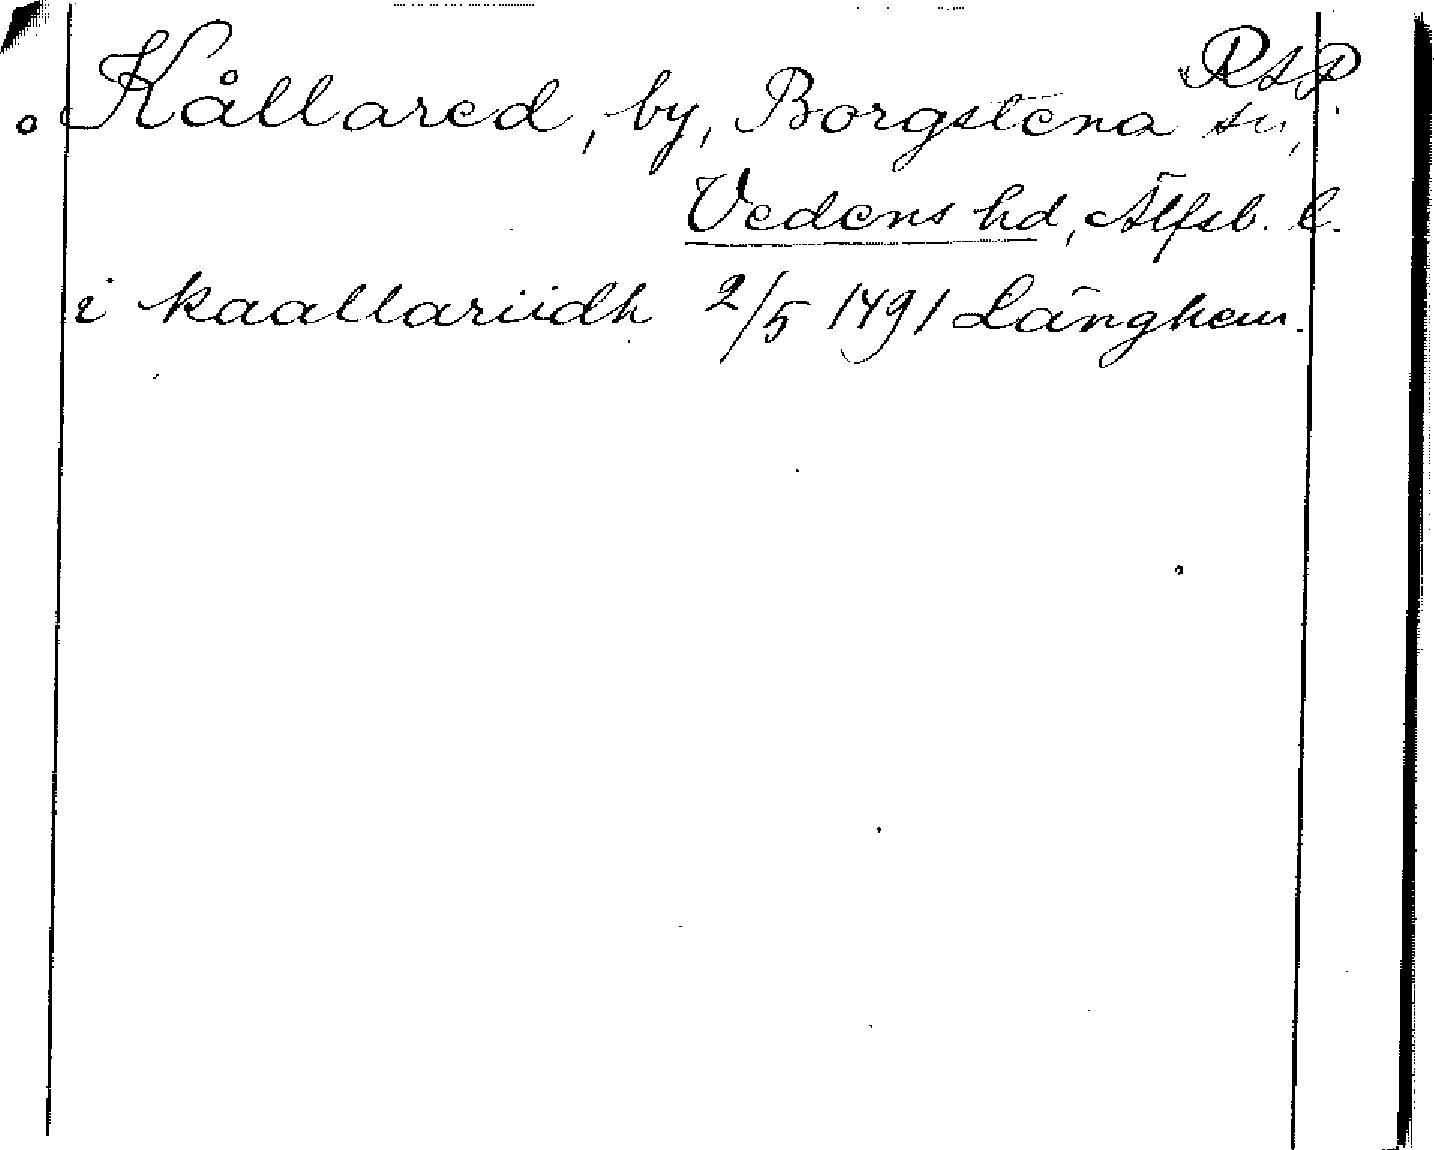 RAP
Kållared, by, Borgstena sn,
Vedens hd, Älfsb. l.
i kaallariidh 2/5 1491 Länghem.